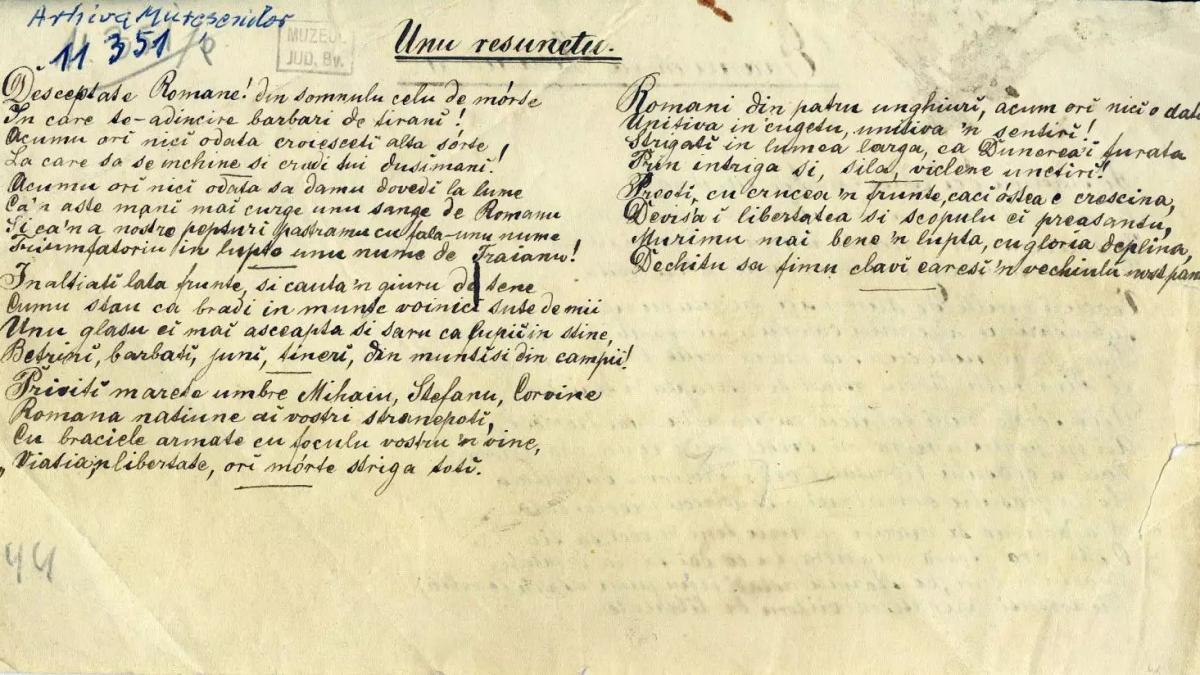 Arhiva Muresenilor
11351
MUZEUL
JUD. Bv.
Unu resunetu.
Desceptate Romane! din somnulu celu de mórte
In care te-adincire barbari de tirani!
Acumu ori nici odata croiesceti alta sórte!
La care sa se inchine si crudi tui dusimani!
Acumu ori nici odata sa damu dovedi la lume
Ca'n aste mani mai curge unu sange de Romanu
Si ca'n a nostre pepturi pastramu cu fala-unu nume
Triumfatoriu in lupte unu nume de Traianu!
Inaltiati lata frunte, si cauta'n giuru de tene
Cumu stau ca bradi in munte voinici sute de mii
Unu glasu ei mai asceapta si saru ca lupii in stine,
Betrini, barbati, juni, tineri, din munti si din campii!
Priviti marete umbre Mihaiu, Stefanu, Corvine
Romana natiune ai vostri stranepoti,
Cu braciele armate cu foculu vostru 'n vine,
„Viatia'n libertate, ori mórte striga toti.
Romani din patru unghiuri, acum ori nici o data
Unitiva in cugetu, unitiva 'n sentiri!
Strigati in lumea larga, ca Dunerea'i furata
Prin intriga si, sila, viclene unctiri!
Preoti, cu crucea 'n frunte, caci óstea e crescina,
Devisa'i libertatea si scopulu ei preasantu,
Murimu mai bene 'n lupta, cu gloria deplina,
Dechitu sa fimu clavi earesi 'n vechiulu nost pam
44